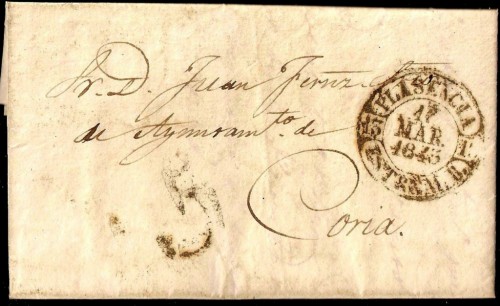 Sr. D. Juan Fernz.
de Ayuntamto. de
Coria.
PLASENCIA
17
MAR
1845
ESTREM. B.
5